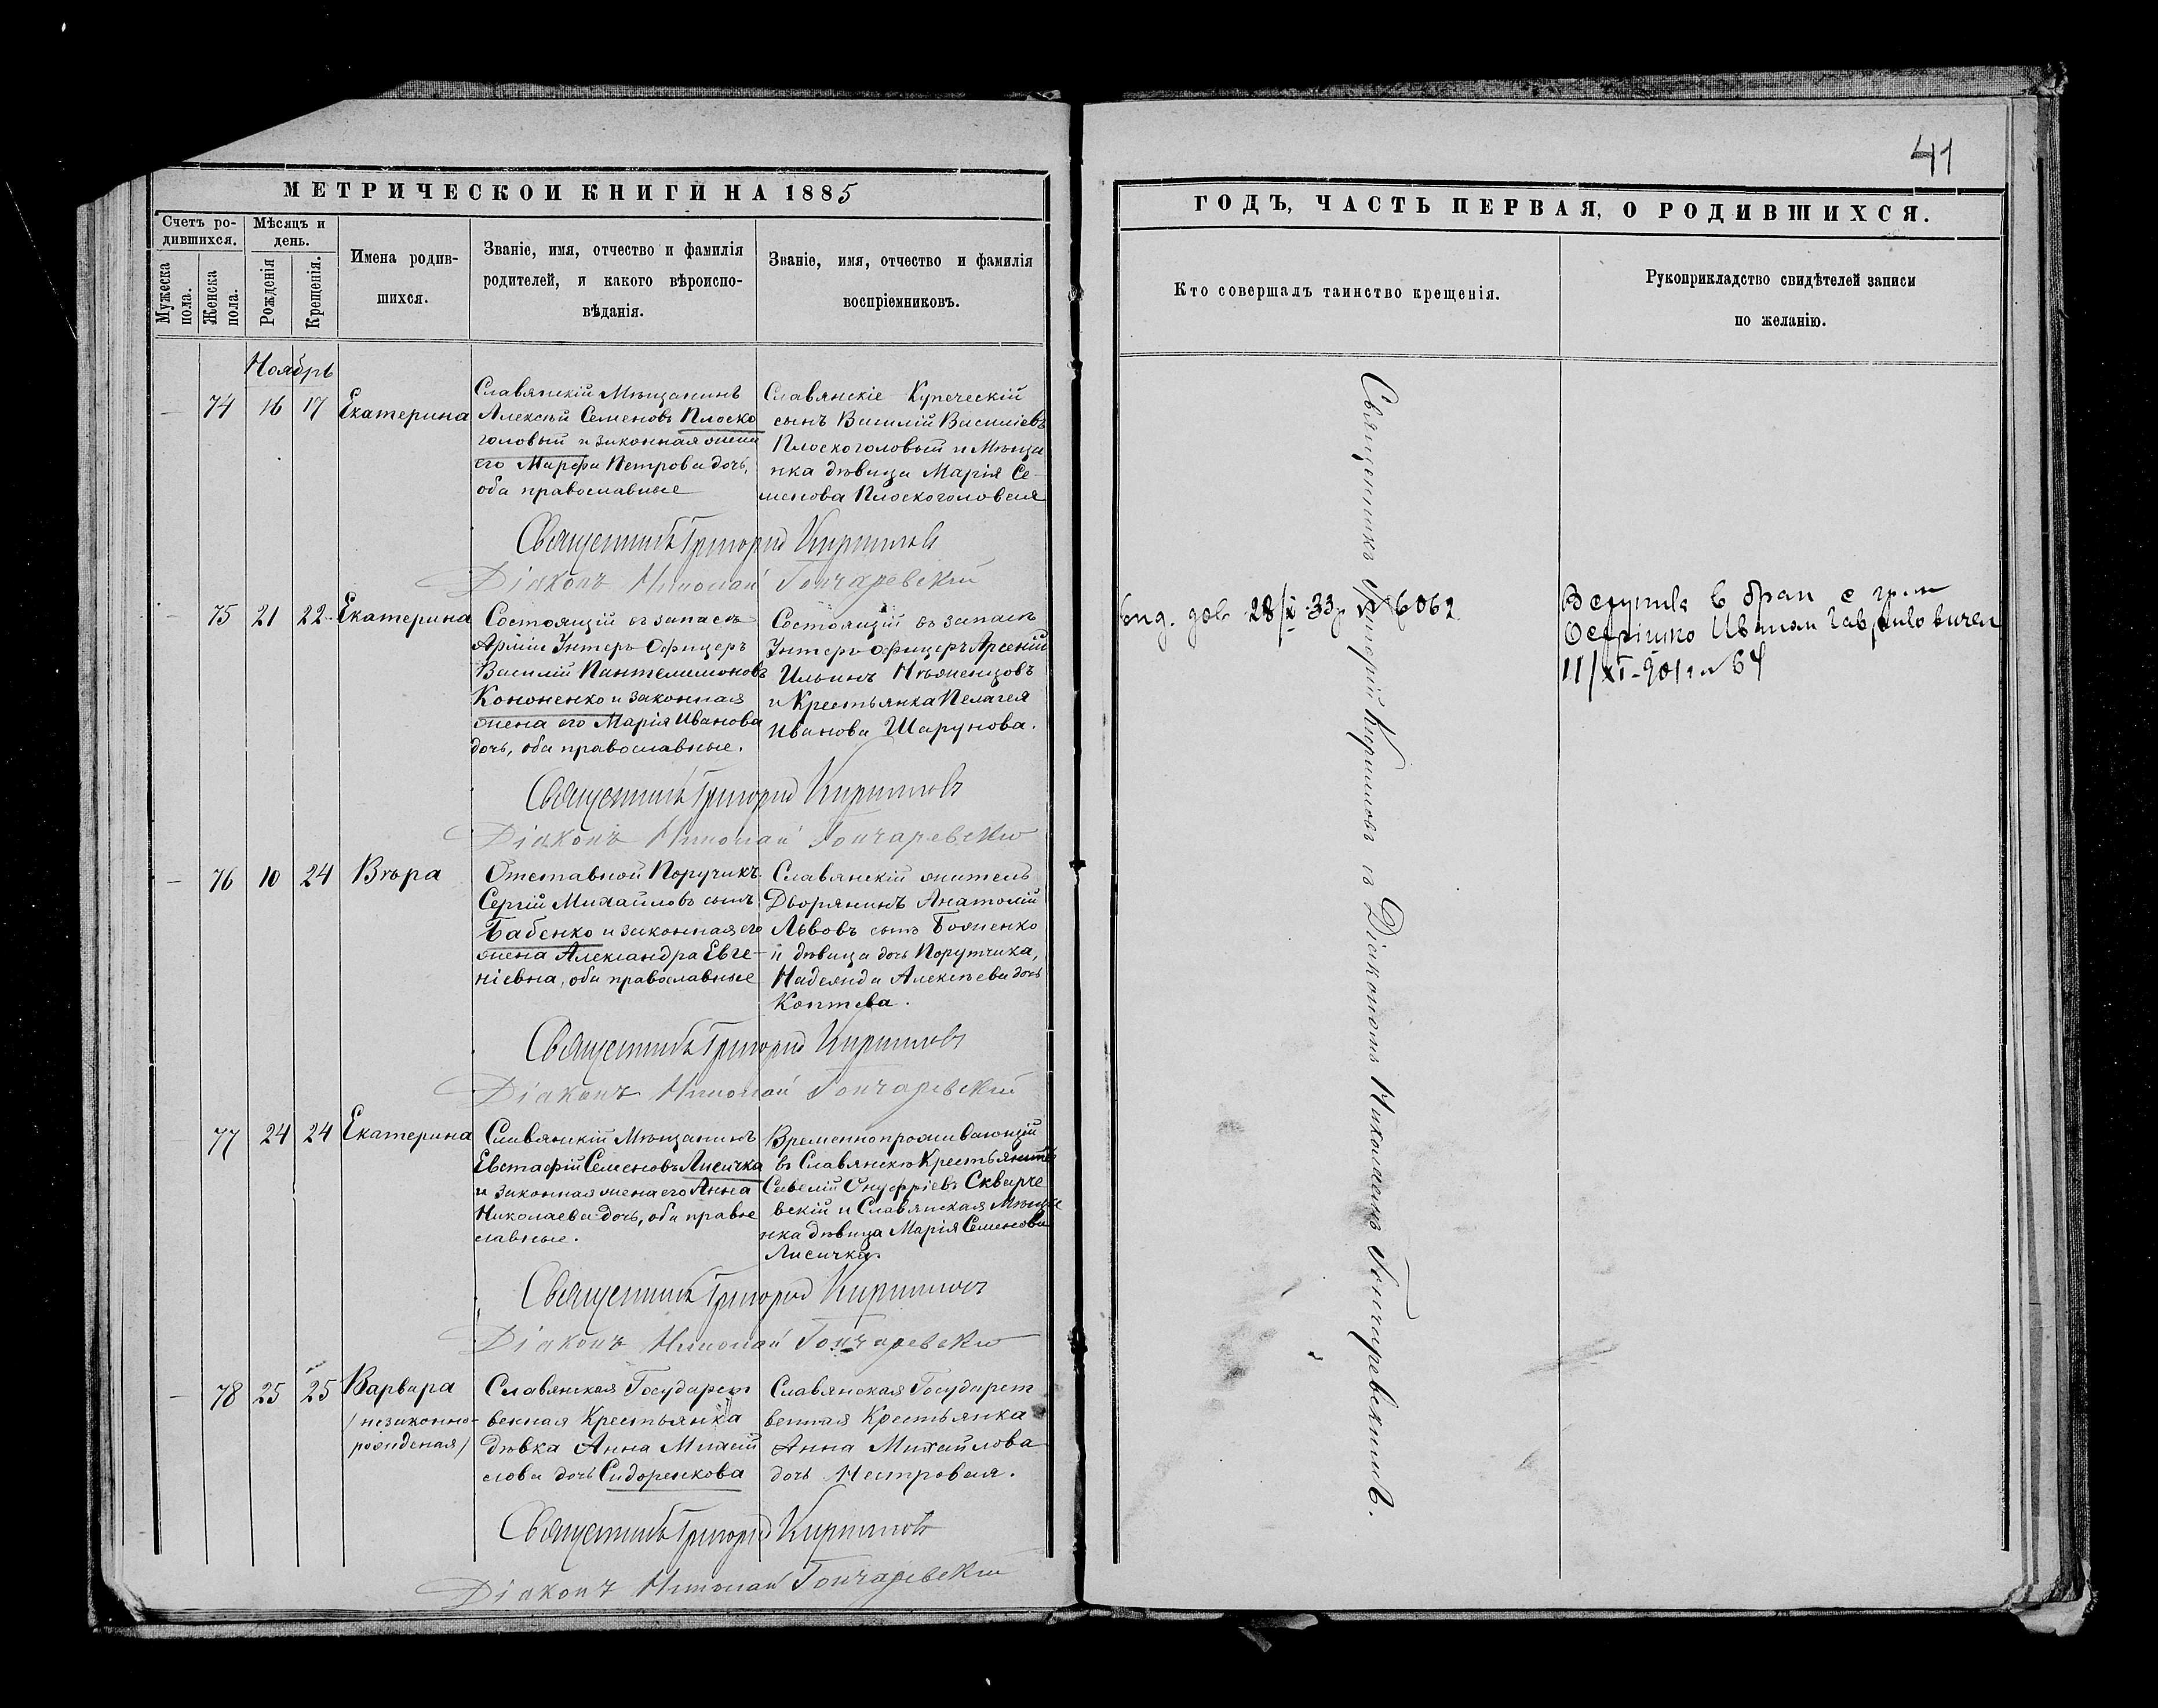 МЕТРИЧЕСКОЙ КНИГИ НА 1885
Счетъ ро-
дившихся.
Мѣсяцъ и
день.
Мужеска
пола.
Женска
пола.
Рожденія
Крещенія.
Имена родив-
шихся.
Званіе, имя, отчество и фамилія
родителей, и какого вѣроиспо-
вѣданія.
Званіе, имя, отчество и фамилія
воспріемниковъ.
Ноябрь
— 74 16 17 Екатерина
Славянскій Мѣщанинъ
Алексѣй Семеновъ Плоско
головый и законная жена
его Марфа Петрова дочь,
оба православные
Славянскіе Купеческій
сынъ Василій Васильевъ
Плоскоголовый и Мѣща
нка дѣвица Марія Се-
менова Плоскоголовая
Священникъ Григорій Кирилловъ
Діаконъ Николай Гончаревскій
— 75 21 22 Екатерина
Состоящій въ запасѣ
Арміи Унтеръ Офицеръ
Василій Пантелимоновъ
Кононенко и законная
жена его Марія Иванова
дочь, оба православные.
Состоящій въ запасѣ
Унтеръ Офицеръ Арсеній
Ильинъ
и Крестьянка Пелагея
Иванова Шарунова.
Священникъ Григорій Кирилловъ
Діаконъ Николай Гончаревскій
— 76 10 24 Вѣра
Отставной Поручикъ
Сергій Михайловъ сынъ
Бабенко и законная его
жена Александра Евге-
ніевна, оба православные
Славянскій житель
Дворянинъ Анатолій
Львовъ сынъ Боженко
и дѣвица дочь Порутчика,
Надежда Алексѣева дочь
Коптева.
Священникъ Григорій Кирилловъ
Діаконъ Николай Гончаревскій
77 24 24 Екатерина
Славянскій Мѣщанинъ
Евстафій Семеновъ Лисичка
и законная жена его Анна
Николаева дочь, оба право
славные.
Временнопроживающій
въ Славянскѣ Крестьянинъ
Савелій Онуфріевъ Скварче
вскій и Славянская Мѣща
нка дѣвица Марія Семенова
Лисичка.
Священникъ Григорій Кирилловъ
Діаконъ Николай Гончаревскій
— 78 25 25 Варвара
/незаконно-
рожденая/
Славянская Государст
венная Крестьянка
дѣвка Анна Михай
лова дочь Сидоренкова
Славянская Государст
венная Крестьянка
Анна Михайлова
дочь Нестровая.
Священникъ Григорій Кирилловъ
Діаконъ Николай Гончаревскій
41
ГОДЪ, ЧАСТЬ ПЕРВАЯ, О РОДИВШИХСЯ.
Кто совершалъ таинство крещенія.
Рукоприкладство свидѣтелей записи
по желанію.
Священникъ Григорій Кирилловъ съ Діакономъ Николаемъ Гончаревскимъ.
вид. дов. 28/X 33р №6062
Вступила в брак с гр-м
Иваном Гавриловичем
11/XI-901 г. № 64